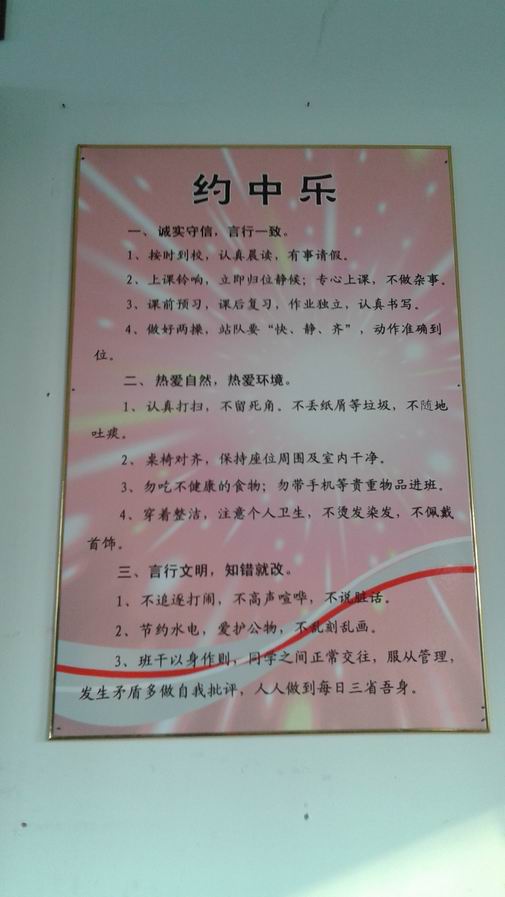 约中乐
一、诚实守信，言行一致。
1、按时到校，认真晨读，有事请假。
2、上课铃响，立即归位静候；专心上课，不做杂事。
3、课前预习，课后复习，作业独立，认真书写。
4、做好两操，站队要“快、静、齐”，动作准确到
位。
二、热爱自然，热爱环境。
1、认真打扫，不留死角。不丢纸屑等垃圾，不随地
吐痰。
2、桌椅对齐，保持座位周围及室内干净。
3、勿吃不健康的食物；勿带手机等贵重物品进班。
4、穿着整洁，注意个人卫生，不烫发染发，不佩戴
首饰。
三、言行文明，知错就改。
1、不追逐打闹，不高声喧哗，不说脏话。
2、节约水电，爱护公物，不乱刻乱画。
3、班干以身作则，同学之间正常交往，服从管理，
发生矛盾多做自我批评，人人做到每日三省吾身。